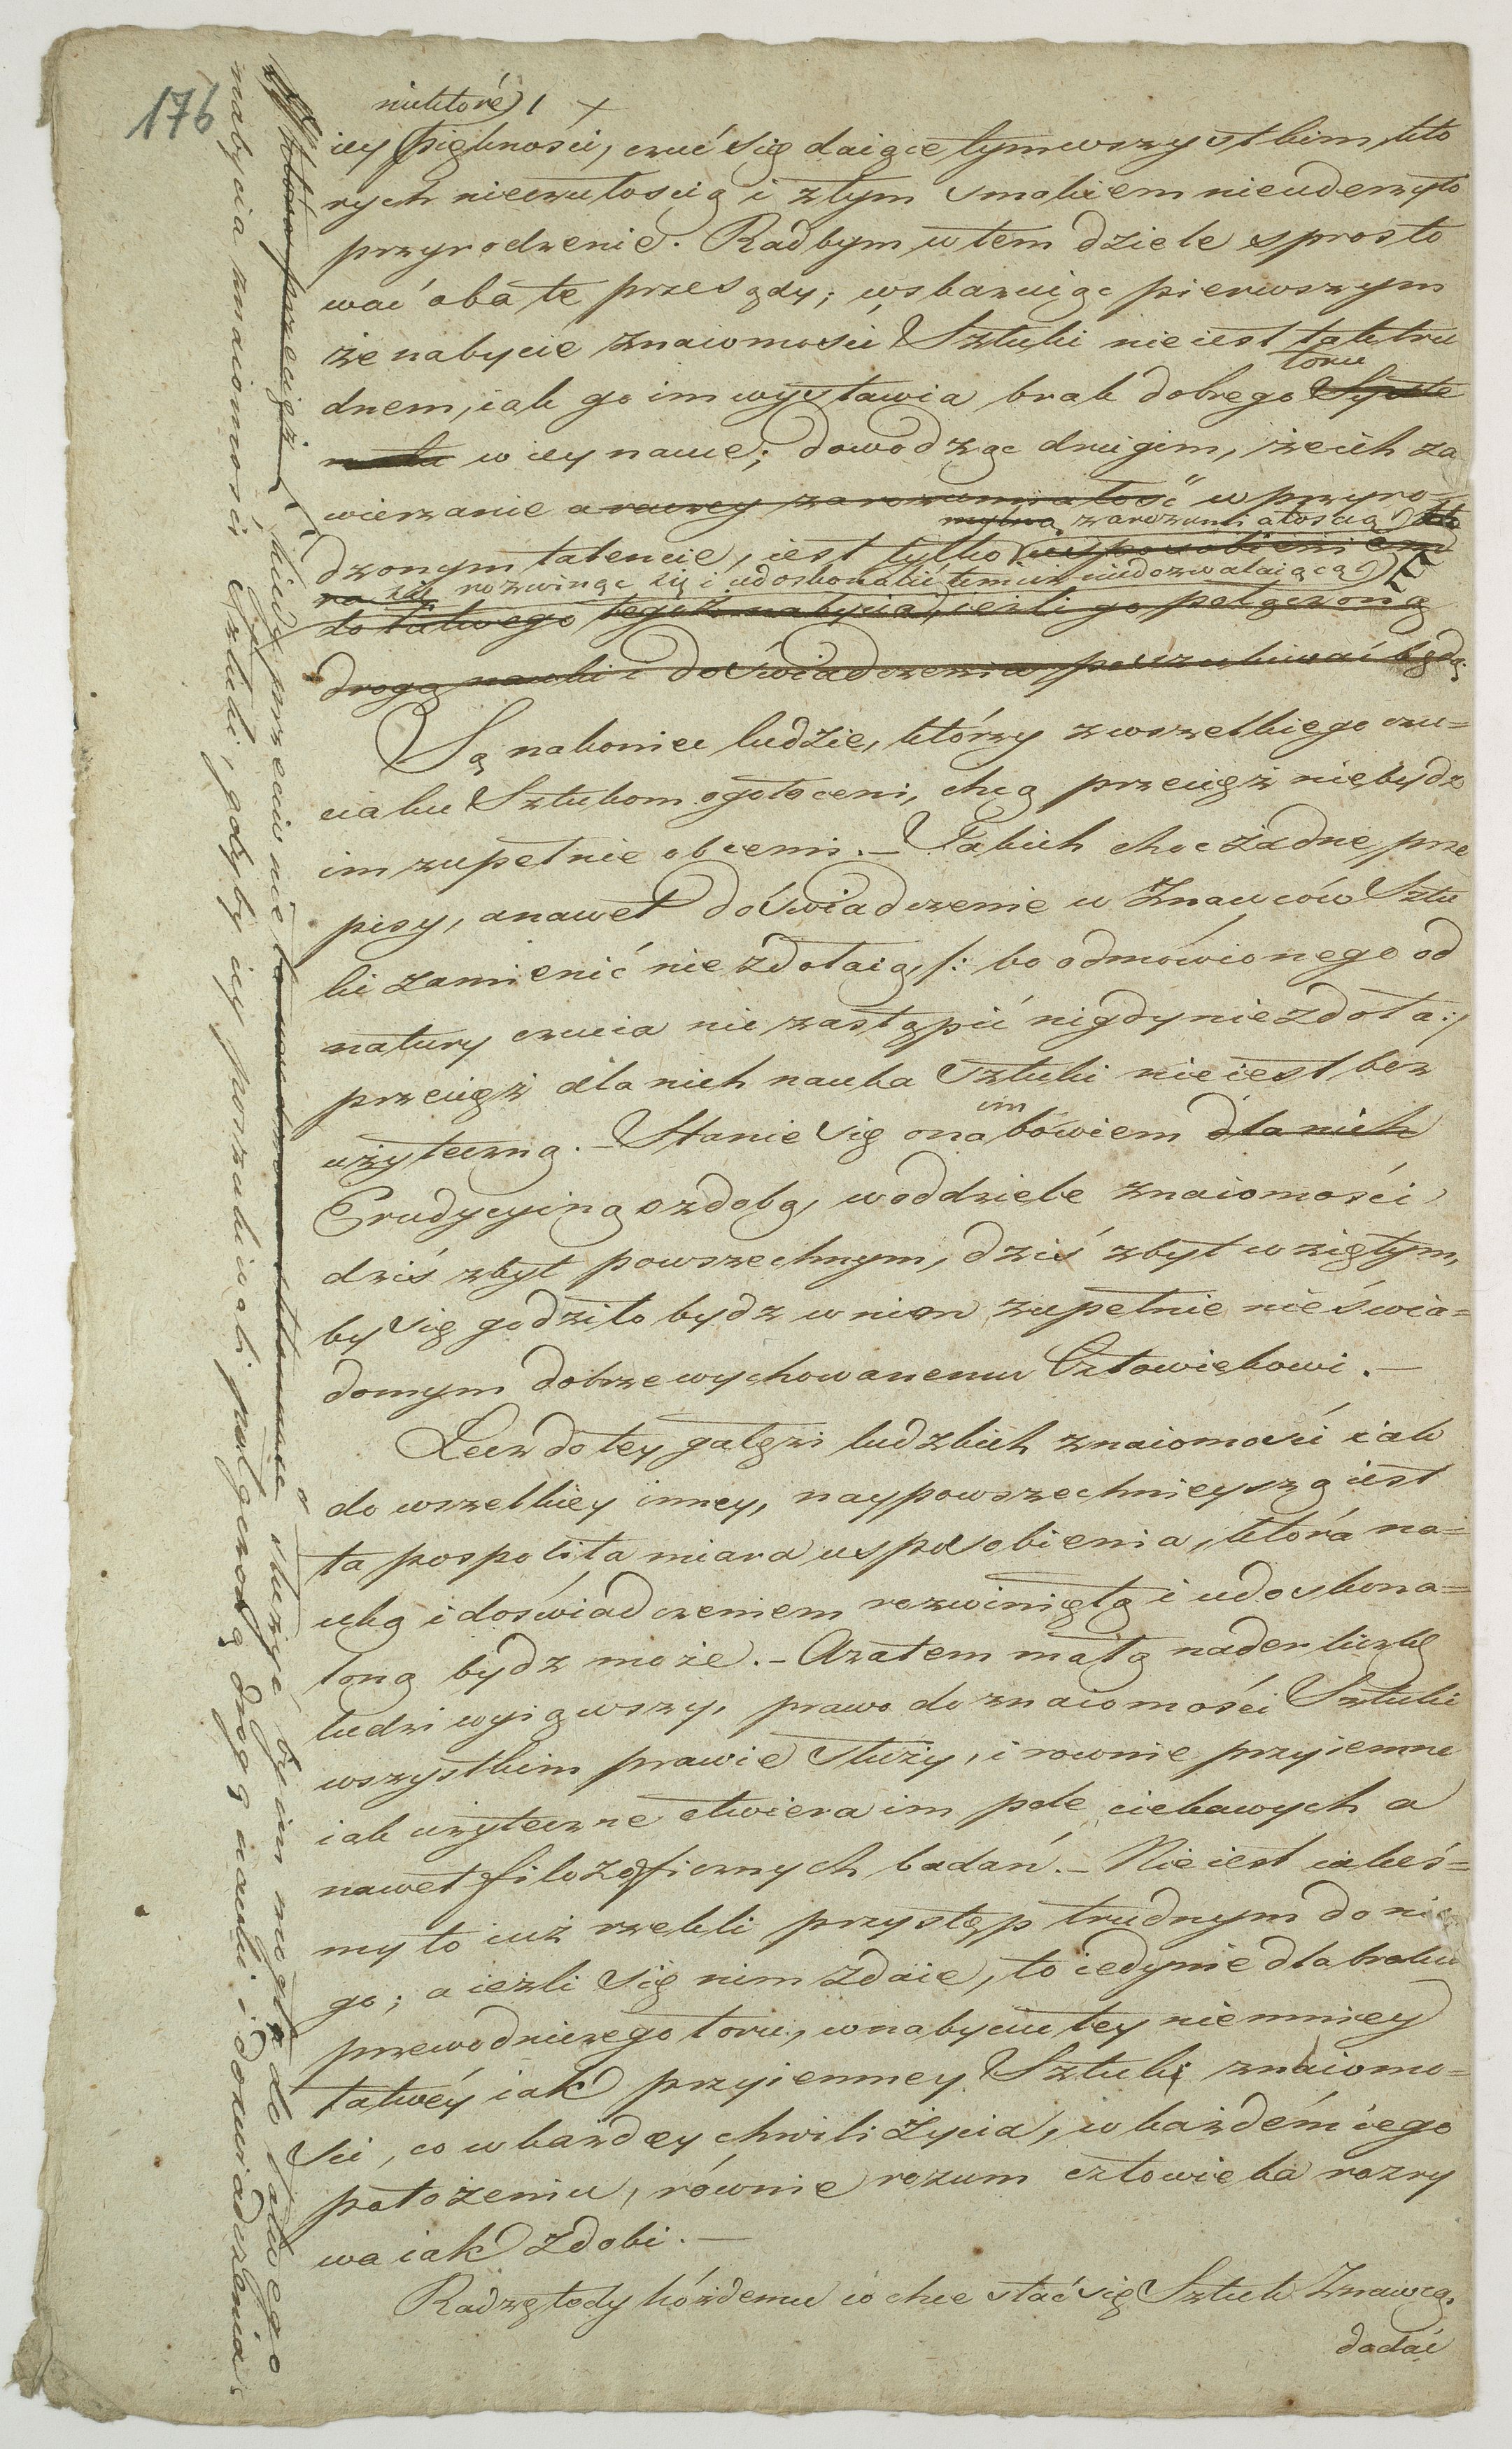 176
niektóre) 1 +
iey piękności, czuć się daiące tym wszystkim, któ
rych nieczułością i złym smakiem nieuderzyło
przyrodzenie. Radbym w tem dziele sprosto
wać oba te przesądy; wskazuiąc pierwszym
że nabycie znaiomości Sztuki nie iest tak tru
toru
dnem, iak go im wystawia brak dobrego Syste
matu w iey nauce; dowodząc drugim, że ich za
wierzanie a raczey zarozumiałość w przyro-
mylną zarozumiałością któ
dzonym talencie, iest tylko usposobieniem
ra się rozwinąc się i udoskonalić temuż niedozwalaiącą)
do łatwego tegoż nabycia, ieżli go połączoną
drogą nauki i doświadczenia poszukiwać będą.
Są nakoniec ludzie, którzy z wszelkiego czu-
cia ku Sztukom ogołoceni, chcą przecięż niebydź
im zupełnie obcemi. – Takich choc żadne prze
pisy, a nawet doświadczenie w Znawców Sztu
ki zamienić nie zdołaią, /: bo odmówionego od
natury czucia nic zastąpić nigdy niezdoła :/
przecięż dla nich nauka Sztuki nie iest bez
im
użyteczną. – Stanie się ona bowiem dla nich
Erudycyiną ozdobą, w oddziele znaiomości
dziś zbyt powszechnym, dziś zbyt wziętym,
by się godziło bydz w nim zupełnie nieświa-
domym dobrze wychowanemu Człowiekowi. –
Lecz do tey gałęzi ludzkich znaiomości iak
do wszelkiey inney, naypowszechnieyszą iest
ta pospolita miara usposobienia, która na-
uką i doświadczeniem rozwiniętą i udoskona-
loną bydz może. – A zatem małą nader liczbę
ludzi wyiąwszy, prawo do znaiomości Sztuki
wszystkim prawie służy, i rownie przyiemne
iak użyteczne otwiera im pole ciekawych a
nawet filozoficznych badań. – Nie iest iakeś-
my to iuż rzekli przystęp trudnym do nie
go; a ieżli się nim zdaie, to iedynie dla braku
przewodniczego toru, w nabyciu tey niemniey
łatwéy iak przyiemney Sztuki znaiomo-
ści, co w każdey chwili życia, w każdém iego
położeniu, równie rozum człowieka rozry
wa iak zdobi. –
Radzę tedy kóżdemu co chce stać się Sztuk Znawcą.
dadać
która przecięż kiedy przeciwnie służyć by im mogła do łatwego
nabycia znaiomości Sztuki, gdyby iey poszukiwali połączoną drogą nauki i doswiadczenia.